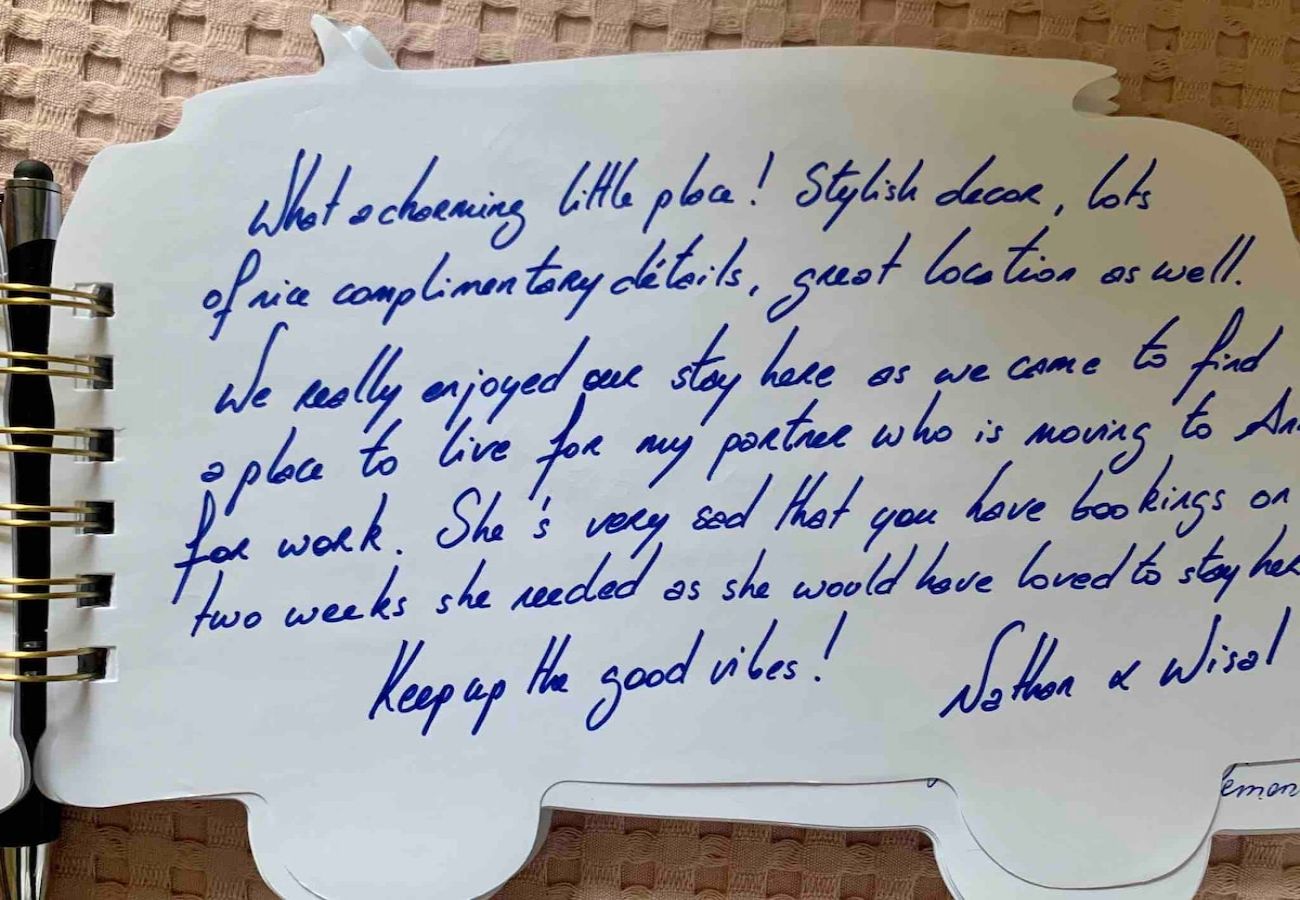 What a charming little place! Stylish decor, lots
of nice complimentary détails, great location as well.
We really enjoyed our stay here as we came to find
a place to live for my partner who is moving to
for work. She's very sad that you have bookings on
two weeks she needed as she would have loved to stay
Keep up the good vibes! Nathan & Wisal